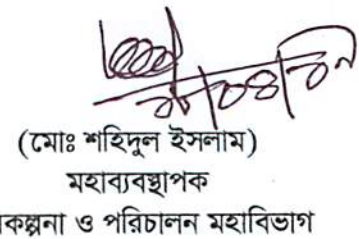 (মোঃ শহিদুল ইসলাম)
মহাব্যবস্থাপক
কল্পনা ও পরিচালন মহাবিভাগ